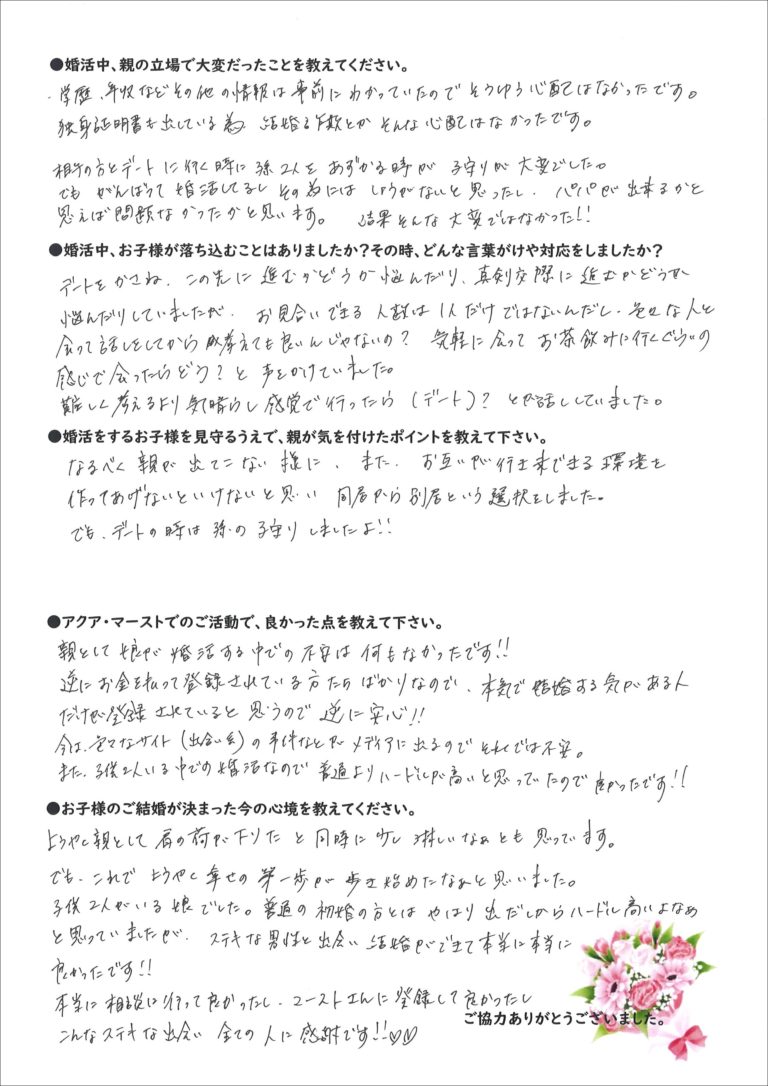 ●婚活中、親の立場で大変だったことを教えてください。
・学歴、年収などその他の情報は事前にわかっていたのでそうゆう心配はなかったです。
独身証明書も出している為、結婚詐欺とかそんな心配はなかったです。
相手の方とデートに行く時に孫2人をあずかる時が子守りが大変でした。
でもがんばって婚活してるしその為にはしょうがないと思ったし、パパが出来るかと
思えば問題なかったかと思います。 結果そんな大変ではなかった!!
●婚活中、お子様が落ち込むことはありましたか？その時、どんな言葉がけや対応をしましたか？
デートをかさね、この先に進むかどうか悩んだり、真剣交際に進むかどうか
悩んだりしていましたが、お見合いできる人数は1人だけではないんだし、色々な人と
会って話しをしてから考えても良いんじゃないの？ 気軽に会ってお茶飲みに行くぐらいの
感じで会ったらどう？と声をかけていました。
難しく考えるより気晴らし感覚で行ったら（デート）？とか話ししていました。
●婚活をするお子様を見守るうえで、親が気を付けたポイントを教えて下さい。
なるべく親が出てこない様に、また、お互いが行き来できる環境を
作ってあげないといけないと思い 同居から別居という選択をしました。
でも、デートの時は孫の子守りしましたよ!!
●アクア・マーストでのご活動で、良かった点を教えて下さい。
親として娘が婚活する中での不安は何もなかったです!!
逆にお金を払って登録されている方たちばかりなので、本気で結婚する気がある人
だけが登録されていると思うので逆に安心!!
今は、色々なサイト（出会い系）の事件などがメディアに出るのでそれでは不安。
また、子供2人いる中での婚活なので普通よりハードルが高いと思っていたので良かったです!!
●お子様のご結婚が決まった今の心境を教えてください。
ようやく親として肩の荷が下りたと同時に少し淋しいなぁとも思っています。
でも、これでようやく幸せの第一歩が歩き始めたなぁと思いました。
子供2人がいる娘でした。普通の初婚の方とはやはり出だしからハードル高いよなぁ
と思っていましたが、ステキな男性と出会い結婚ができて本当に本当に
良かったです!!
本当に相談に行って良かったし、マーストさんに登録して良かったし
こんなステキな出会い 全ての人に感謝です!!♡♡
ご協力ありがとうございました。